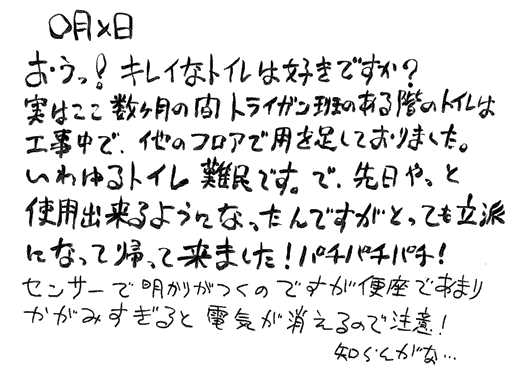 〇月×日
おうっ!キレイなトイレは好きですか?
実はここ数ヶ月の間トライガン班のある階のトイレは
工事中で、他のフロアで用を足しておりました。
いわゆるトイレ難民です。で、先日やっと
使用出来るようになったんですがとっても立派
になって帰って来ました!パチパチパチ!
センサーで明かりがつくのですが便座であまり
かがみすぎると電気が消えるので注意!
知らんがな…